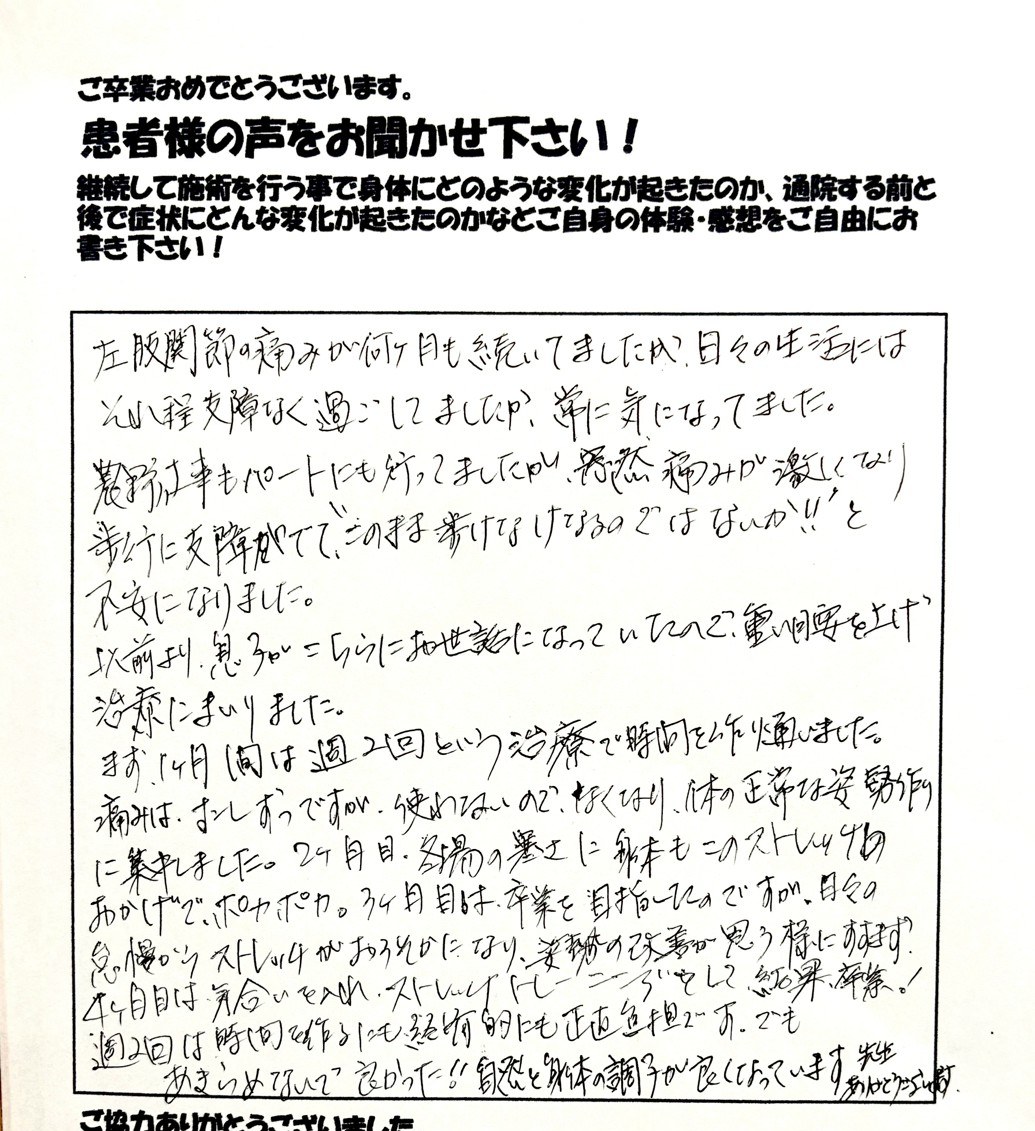 ご卒業おめでとうございます。
患者様の声をお聞かせ下さい！
継続して施術を行う事で身体にどのような変化が起きたのか、通院する前と
後で症状にどんな変化が起きたのかなどご自身の体験・感想をご自由にお
書き下さい！
左股関節の痛みが何ヶ月も続いてましたが、日々の生活には
それ程支障なく過ごしてましたが、常に気になってました。
農野仕事もパートにも行ってましたが、突然痛みが激しくなり
歩行に支障がでて、"このまま歩けなけなるのではないか!!"と
不安になりました。
以前より、息子がこちらにお世話になっていたので、重い腰を上げ
治療にまいりました。
まず、1ヶ月間は週2回という治療で時間を作り通いました。
痛みは、少しずつですが、使わないので、なくなり、体の正常な姿勢作り
に集中しました。2ヶ月目、冬場の寒さに身体もこのストレッチの
おかげで、ポカポカ。3ヶ月目は、卒業を目指したのですが、日々の
怠慢からストレッチがおろそかになり、姿勢の改善が思う様にすすまず、
4ヶ月目は、気合いを入れ、ストレッチトレーニングをして結果、卒業！
週2回は時間を作るにも経済的にも正直負担です。でも
あきらめないで良かった!!自然と身体の調子が良くなっています 先生
ありがとうございます。
ご協力ありがとうございました